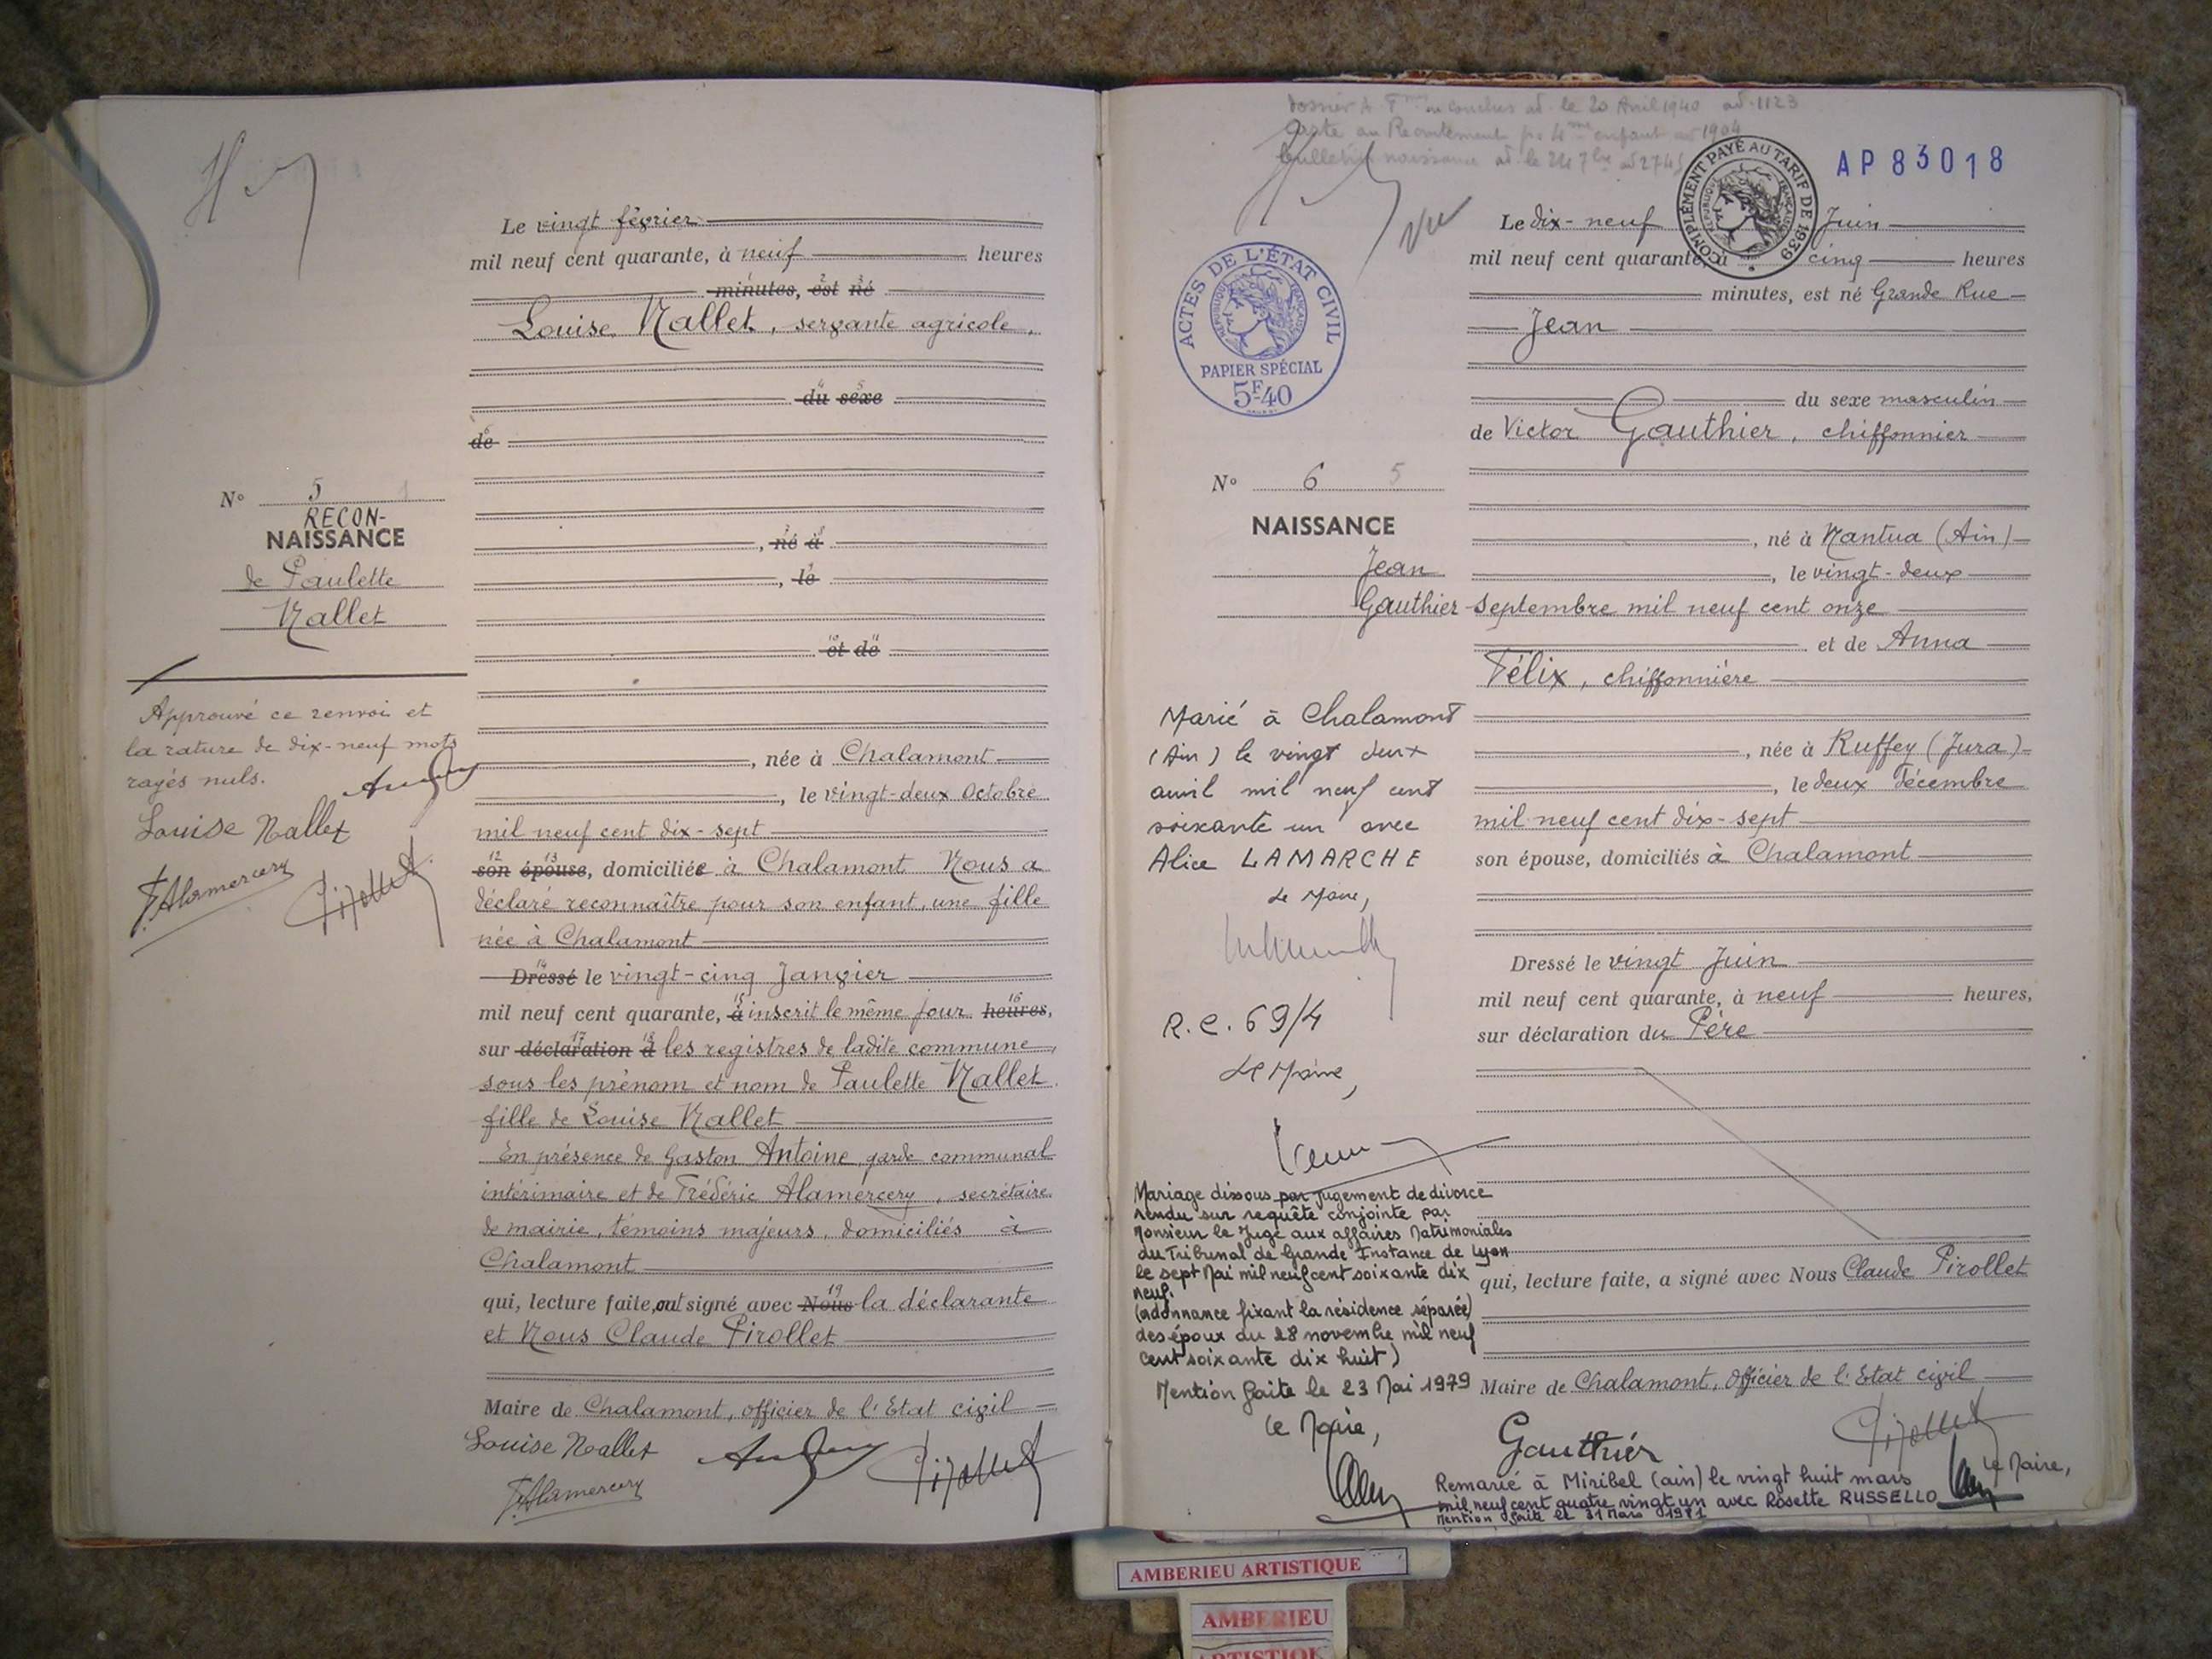 Le vingt février
mil neuf cent quarante, à neuf heures
minutes, est né
Louise Nallet, servante agricole,
du sexe
de
N° 5 1
RECON-
NAISSANCE
de Paulette
Nallet
, né à
, le
et de
Approuvé ce renvoi et
la rature de dix-neuf mots
rayés nuls.
Louise Nallet
FAlamercery Pirollet
, née à Chalamont
, le vingt-deux Octobre
mil neuf cent dix-sept
son épouse, domiciliée à Chalamont Nous a
déclaré reconnaître pour son enfant, une fille
née à Chalamont
Dressé le vingt-cinq Janvier
mil neuf cent quarante, à inscrit le même jour heures,
sur déclaration d les registres de ladite commune,
sous les prénom et nom de Paulette Nallet.
fille de Louise Nallet
En présence de Gaston Antoine, garde communal
intérimaire et de Frédéric Alamercery, secrétaire
de mairie, témoins majeurs, domiciliés à
Chalamont
qui, lecture faite, ont signé avec Nous la déclarante
et Nous Claude Pirollet
Maire de Chalamont, officier de l'Etat civil
Louise Nallet Pirollet
FAlamercery
le 20 Avril 1940 1123
Carte au Recrutement 4me enfant 1904
bulletin naissance le 24 7bre 2745
COMPLÉMENT PAYÉ AU TARIF DE 1939
RÉPUBLIQUE FRANÇAISE
AP 83018
Vu
ACTES DE L'ÉTAT CIVIL
RÉPUBLIQUE FRANÇAISE
PAPIER SPÉCIAL
5F40
Le dix-neuf Juin
mil neuf cent quarante, à cinq heures
minutes, est né Grande Rue
Jean
du sexe masculin
de Victor Gauthier, chiffonnier
N° 6 5
NAISSANCE
Jean
Gauthier
, né à Nantua (Ain)
, le vingt-deux
septembre mil neuf cent onze
et de Anna
Félix, chiffonnière
, née à Ruffey (Jura)
, le deux Décembre
mil neuf cent dix-sept
son épouse, domiciliés à Chalamont
Dressé le vingt Juin
mil neuf cent quarante, à neuf heures,
sur déclaration du Père
qui, lecture faite, a signé avec Nous Claude Pirollet
Maire de Chalamont, officier de l'Etat civil
Gauthier Pirollet
Marié à Chalamont
(Ain) le vingt deux
avril mil neuf cent
soixante un avec
Alice LAMARCHE
Le Maire,
R.C. 69/4
Le Maire,
Mariage dissous par jugement de divorce
rendu sur requête conjointe par
Monsieur le Juge aux affaires Matrimoniales
du Tribunal de Grande Instance de Lyon
le sept Mai mil neuf cent soixante dix
neuf.
(ordonnance fixant la résidence séparée
des époux du 28 novembre mil neuf
cent soixante dix huit)
Mention faite le 23 Mai 1979
Le Maire,
Remarié à Miribel (ain) le vingt huit mars
mil neuf cent quatre vingt un avec Rosette RUSSELLO
Mention faite le 31 Mars 1981
Le Maire,
AMBERIEU ARTISTIQUE
AMBERIEU
ARTISTIQUE